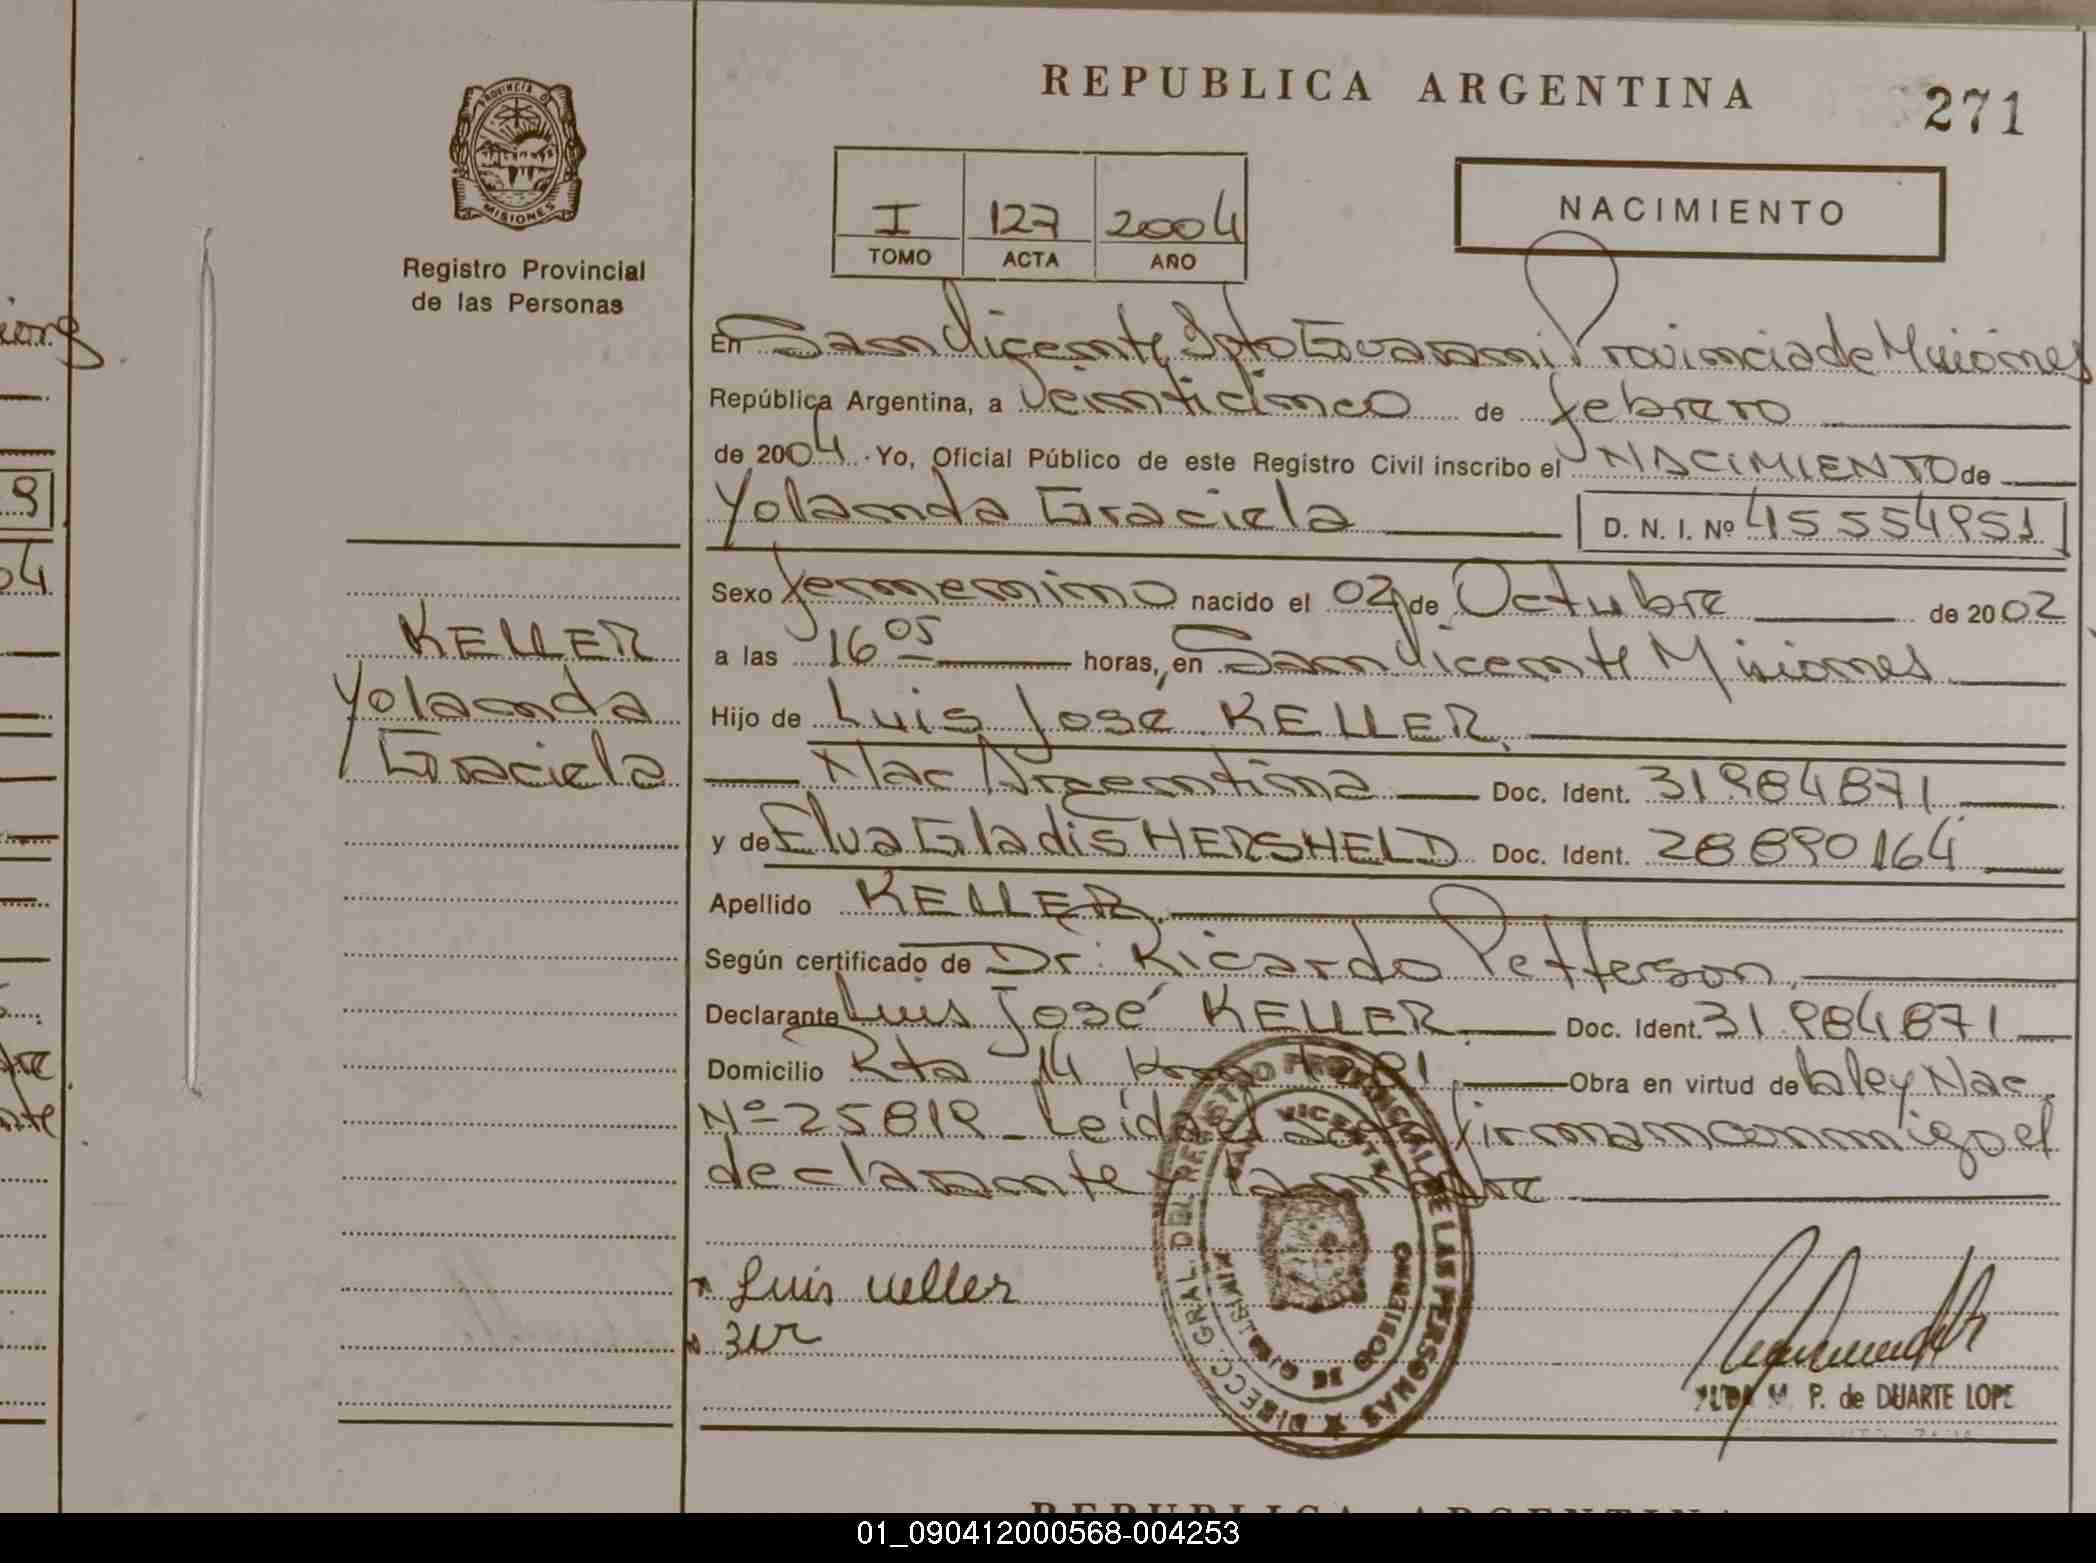 REPUBLICA ARGENTINA
271
PROVINCIA DE
MISIONES
Registro Provincial
de las Personas
I 127 2004
TOMO ACTA AÑO
NACIMIENTO
En San Vicente Dpto Guarani Provincia de Misiones
República Argentina, a veinticinco de febrero
de 2004. Yo, Oficial Público de este Registro Civil inscribo el NACIMIENTO de
Yolanda Graciela D. N. I. Nº 45554951
Sexo femenino nacido el 02 de Octubre de 2002
a las 16 05 horas, en San Vicente Misiones
Hijo de Luis Jose KELLER,
Nac Argentina Doc. Ident. 31984871
y de Elva Gladis HERSHELD Doc. Ident. 28890164
Apellido KELLER.
Según certificado de Dr. Ricardo Petterson,
Declarante Luis José KELLER. Doc. Ident. 31984871
Domicilio Rta 14 Obra en virtud de la ley Nac.
Nº 25819 - Leida el firman conmigo el
declarante y la madre
KELLER
Yolanda
Graciela
Luis Keller
DIRECC. GRAL. DEL REGISTRO PROVINCIAL DE LAS PERSONAS
SAN VICENTE
MINISTERIO DE GOBIERNO
M. P. de DUARTE LOPE
REPUBLICA ARGENTINA
01_090412000568-004253